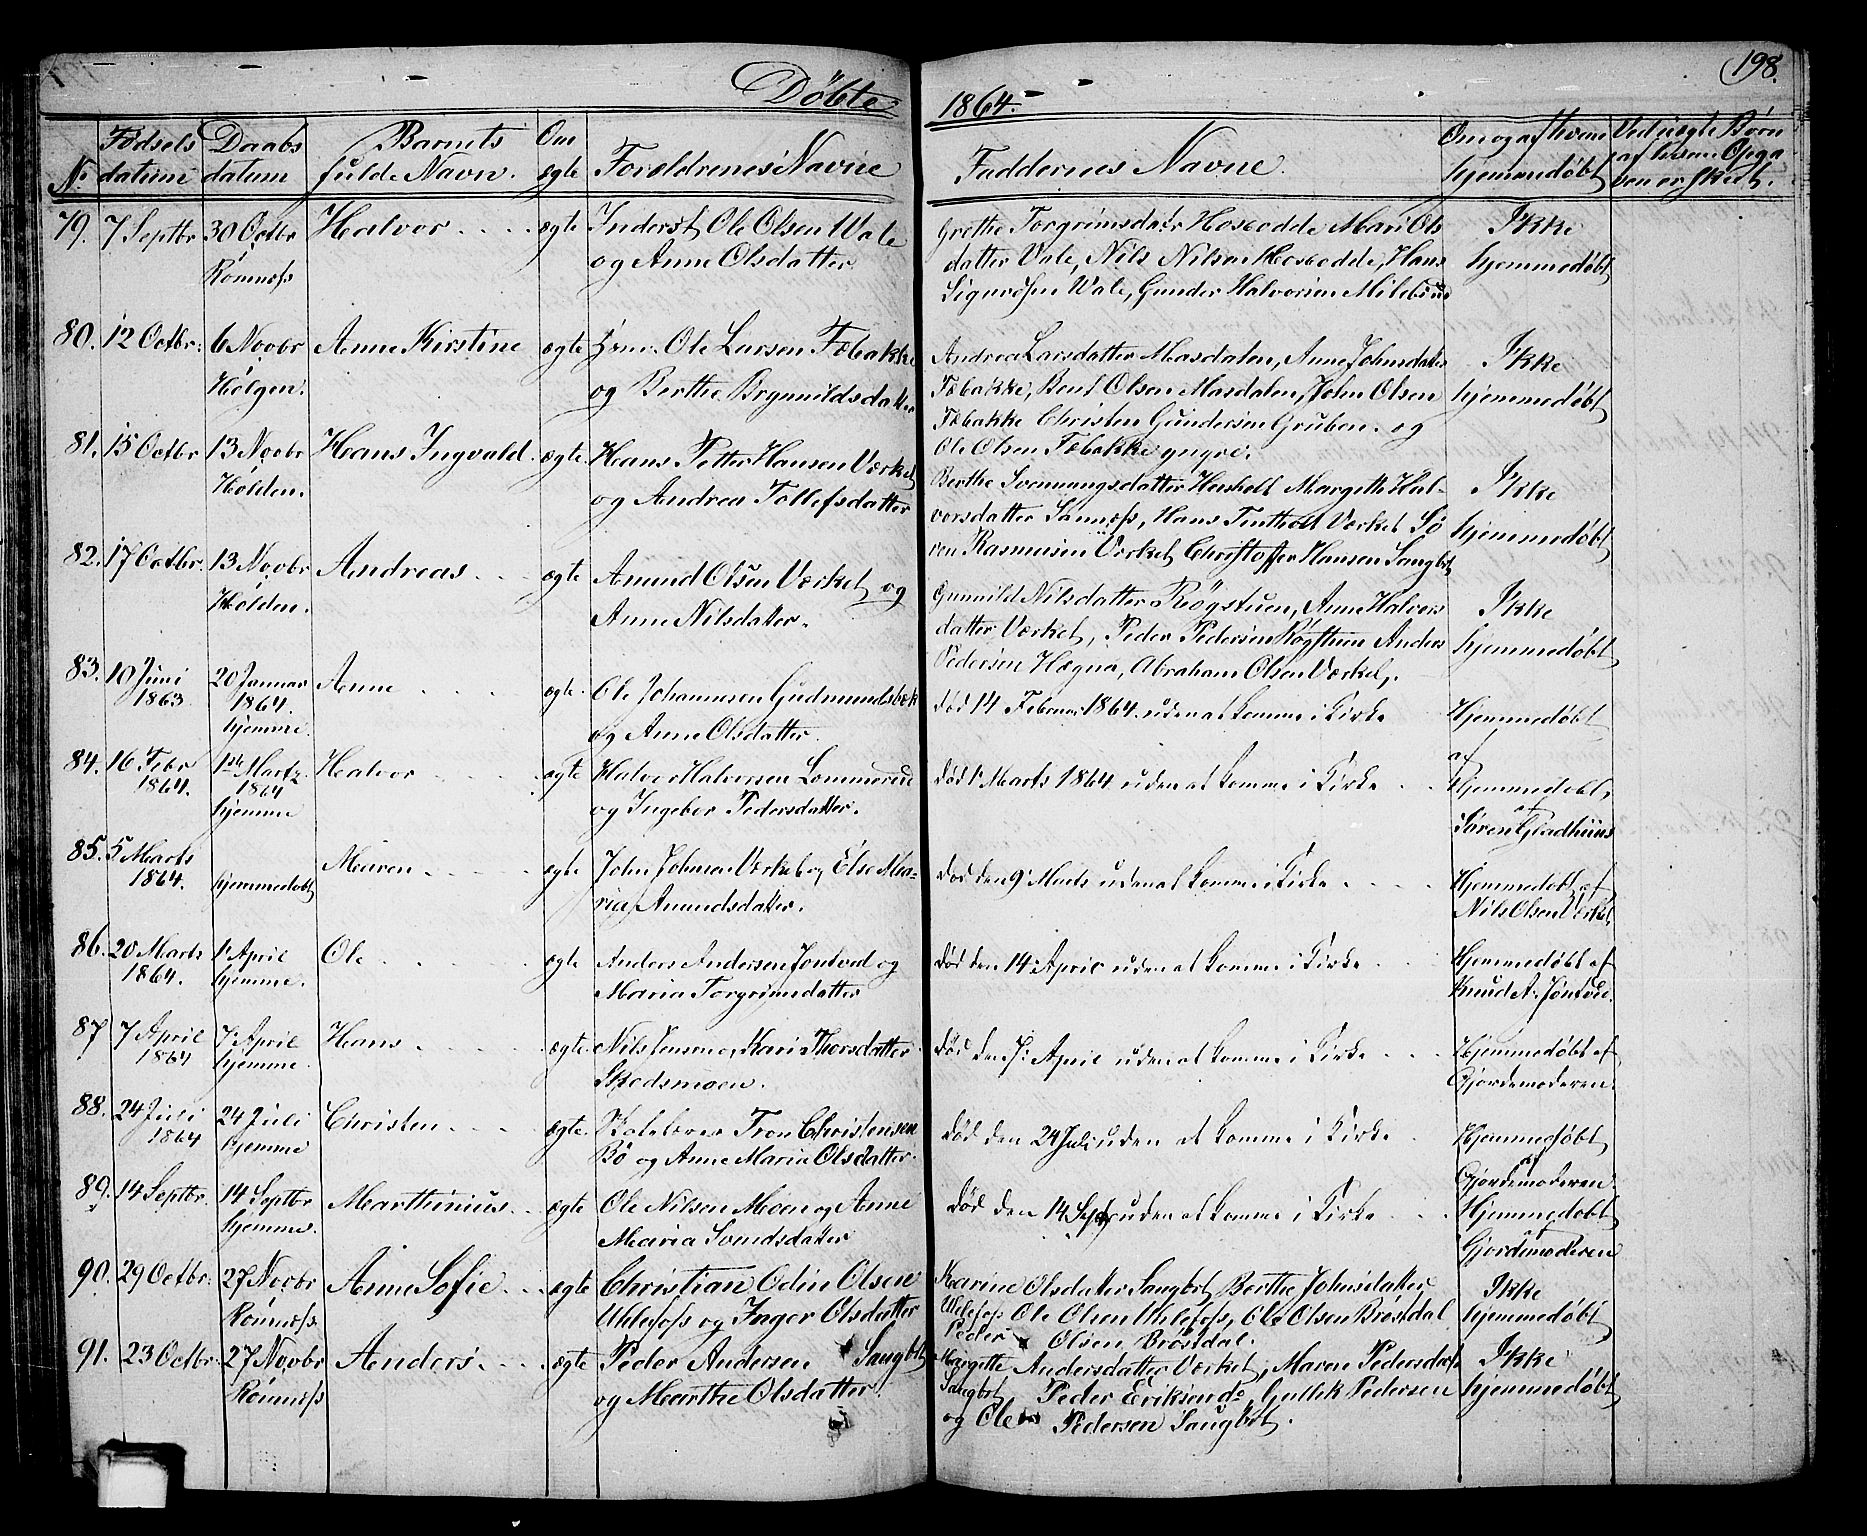 198.
Døbte
1864.
No
Fødsels datum
Daabs datum
Barnets fulde Navn.
Om ægte
Forældrenes Navne
Faddernes Navne.
Om og af hvem hjemmedøbt
Ved uægte Børn af hvem Opgaven er skeet.
79. 7 Septbr 30 Octbr Halvor ægte Inderst Ole Olsen Vale
Rømnæss og Anne Olsdatter
Grethe Torgrimsdatter Mari Ols
datter Vale, Nils Nilsen Hans
Sigurdsen Vale, Gunder Halvorsen
Ikke
hjemmedøbt
80. 12 Octbr: 6 Novbr Anne Kirstine ægte Ole Larsen Fæbakke
Holden. og Berthe Brynnildsdatter
Andrea Larsdatter Masdalen, Anne Johnsdatter
Fæbakke, Bent Olsen Masdalen, John Olsen
Fæbakke Christen Gundersen Gruben. og
Ole Olsen Fæbakke yngre.
Ikke
hjemmedøbt
81. 15 Octbr 13 Novbr Hans Ingvald ægte Hans Petter Hansen Værket
Holden. og Andrea Tollefsdatter
Berthe Svennungsdatter Margithe Hal-
vorsdatter Sannæss, Hans Værket Sø
ren Rasmusen Værket Christoffer Hansen Saugbøt
Ikke
hjemmedøbt
82. 17 Octbr. 13 Novbr Andreas ægte Amund Olsen Værket og
Holden. Anne Nilsdatter.
Gunnild Nilsdatter Røgstuen, Anne Halvors
datter Værket, Peder Pedersen Røgstuen Anders
Pedersen Hægna, Abraham Olsen Værket.
Ikke
hjemmedøbt
83. 10 Juni 1863 20 Januar 1864. hjemme. Anne ægte Ole Johannesen Gudmundsbæk
og Anne Olsdatter.
død 14 Februar 1864. uden at komme i Kirke
Hjemmedøbt
af
84. 16 Febr 1864. 1ste Marts 1864 hjemme Halvor ægte Halvor Halvorsen Lommerud
og Ingebor Pedersdatter.
død 1' Marts 1864 uden at komme i Kirke
Hjemmedøbt.
af
Søren Gladhuus
85. 5 Marts 1864. hjemmedøbt Maren ægte John Johnsen Værket og Else Ma-
ria Amundsdatter.
død den 9' Marts uden at komme i Kirke
Hjemmedøbt af
Nils Olsen Værket.
86. 20 Marts 1864. 1' April hjemme. Ole ægte Anders Andersen Jøntved og
Maria Torgrimsdatter
død den 14' April uden at komme i Kirke
Hjemmedøbt af
Knud A. Jøntved.
87 7 April 1864 7' April hjemme. Hans ægte Nils Jensen og Kari Thorsdatter
Skedsmoen.
død den 7' April uden at komme i Kirke
Hjemmedøbt af
Gjordemoderen.
88. 24 Juli 1864 24 Juli hjemme Christen ægte Tron Christensen
Bø og Anne Maria Olsdatter.
død den 24 Juli uden at komme i Kirke
Hjemmedøbt
af
Gjordemoderen.
89. 14 Septbr. 14 Septbr hjemme. Marthinius ægte Ole Nilsen Moen og Anne
Maria Svendsdatter
død den 14 Septbr uden at komme i Kirke
Hjemmedøbt
af
Gjordemoderen
90. 29 Octbr. 27 Novbr Anne Sofie ægte Christian Odin Olsen
Rømnæss. Ulefoss og Inger Olsdatter
Karine Olsdatter Saugbøt, Berthe Johnsdatter,
Ulefoss Ole Olsen Ulefoss, Ole Olsen Brøstdal
Peder Olsen Brøstdal.
Ikke
hjemmedøbt
91. 23 Octbr. 27 Novbr Anders ægte Peder Andersen Saugbøt
Rømnæss og Marthe Olsdatter
Margithe Andersdatter Værket, Maren Pedersdatter
Saugbøt Peder Eriksen do Gullik Pedersen
og Ole Pedersen Saugbøt.
Ikke
hjemmedøbt